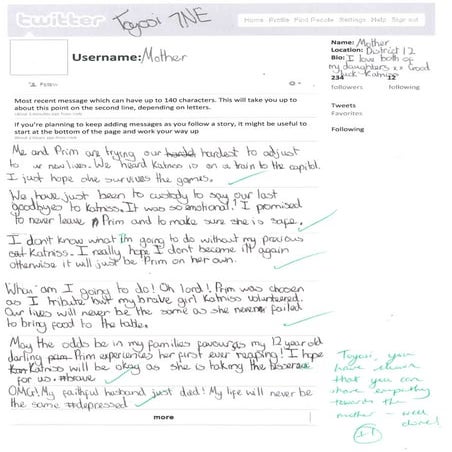 twitter
Toyosi 7NE
Home Profile Find People Settings Help Sign out
Username: Mother
Follow
Name: Mother
Location: District 12
Bio: I love both of
my daughters xx Good
luck Katniss
234 12
followers following
Tweets
Favorites
Following
Most recent message which can have up to 140 characters. This will take you up to
about this point on the second line, depending on letters.
If you're planning to keep adding messages as you follow a story, it might be useful to
start at the bottom of the page and work your way up
Me and Prim are trying our hardest to adjust
to our new lives. We heard Katniss is on a train to the capitol.
I just hope she survives the games.
We have just been to custody to say our last
goodbyes to Katniss. It was so emotional! I promised
to never leave Prim and to make sure she is safe.
I don't know what I'm going to do without my precious
Katniss. I really hope I don't become ill again
otherwise it will just be Prim on her own.
What am I going to do! Oh lord! Prim was chosen
as I tribute but my brave girl Katniss volunteered.
Our lives will never be the same as she never failed
to bring food to the table.
May the odds be in my families favour as my 12 year old
darling Prim experiences her first ever reaping! I hope
Katniss will be okay as she is taking the tesserae
for us. #brave
OMG! My faithful husband just died! My life will never be
the same #depressed
more
Toyosi, you
have shown
that you can
show empathy
towards the
mother - well
done!